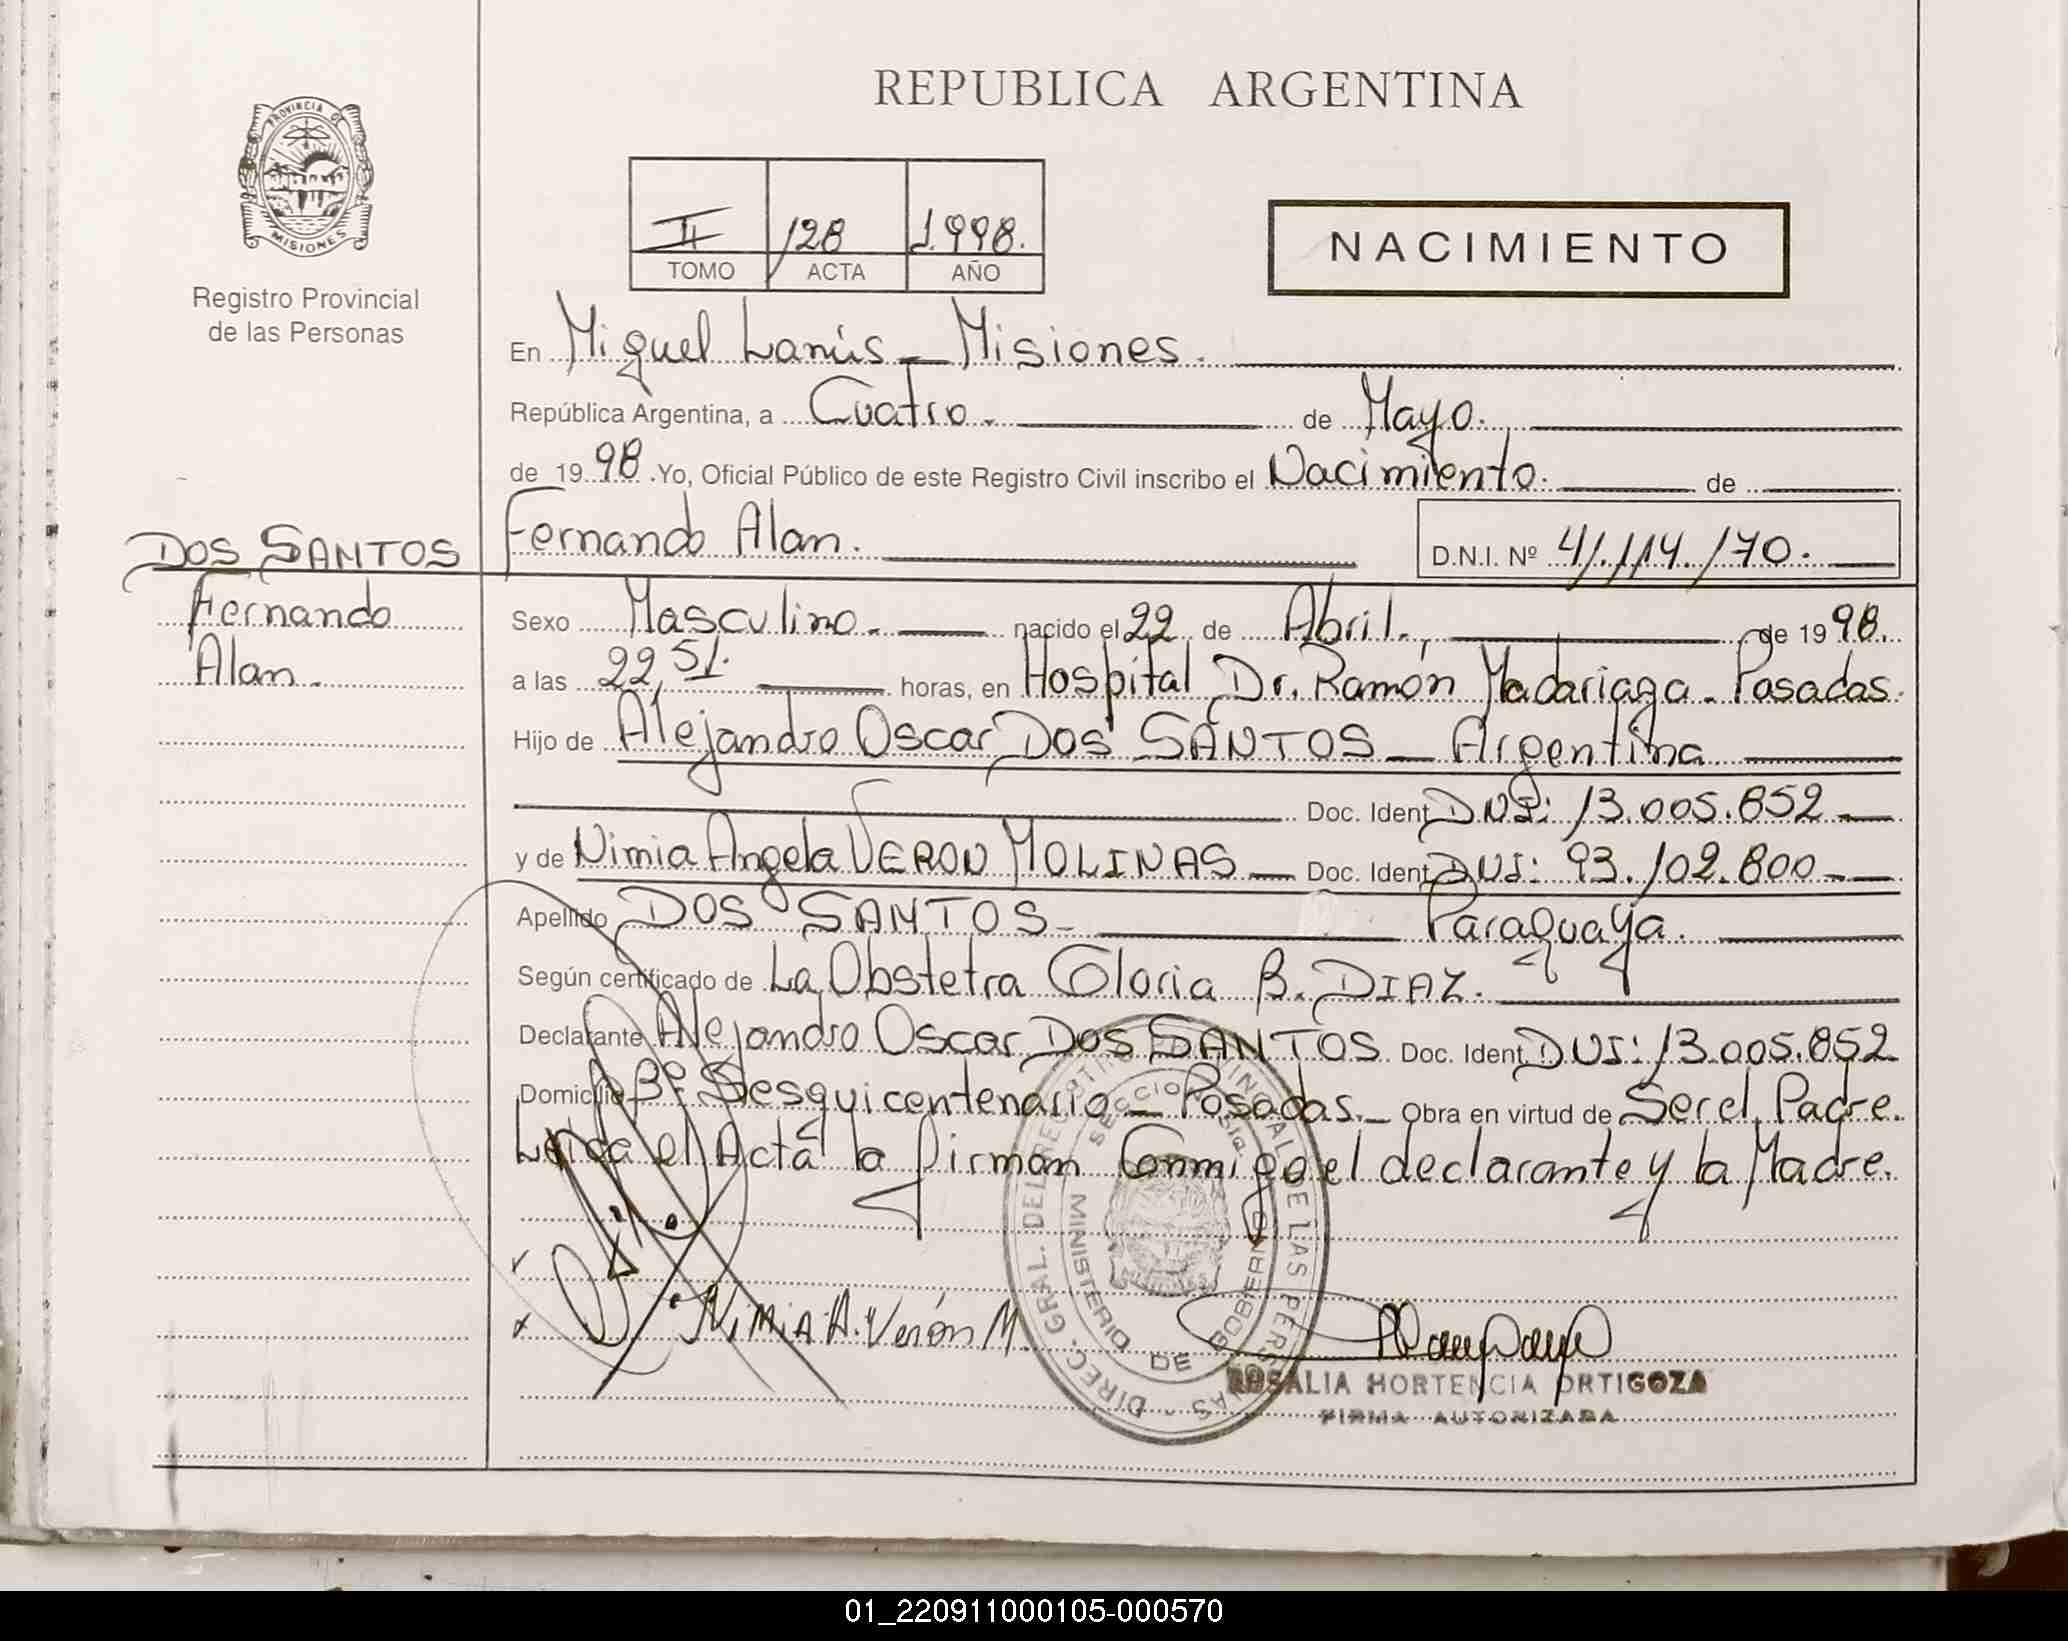 REPUBLICA ARGENTINA
PROVINCIA DE
MISIONES
Registro Provincial
de las Personas
II 128 1.998.
TOMO ACTA AÑO
NACIMIENTO
En Miguel Lanús - Misiones.
República Argentina, a Cuatro. de Mayo.
de 19 98 . Yo, Oficial Público de este Registro Civil inscribo el Nacimiento. de
DOS SANTOS Fernando Alan. D.N.I. Nº 41.114.170.
Fernando
Alan.
Sexo Masculino. nacido el 22 de Abril. de 19 98.
a las 22,51. horas, en Hospital Dr. Ramón Madariaga - Posadas.
Hijo de Alejandro Oscar DOS SANTOS - Argentina
Doc. Ident. DNI: 13.005.852
y de Nimia Angela VERON MOLINAS - Doc. Ident. DNI: 93.102.800
Apellido DOS SANTOS - Paraguaya.
Según certificado de La Obstetra Gloria B. DIAZ.
Declarante Alejandro Oscar DOS SANTOS. Doc. Ident. DNI: 13.005.852
Domicilio Bº Sesquicentenario - Posadas. Obra en virtud de Ser el Padre.
Leída el Acta la firman Conmigo el declarante y la Madre.
Nimia A. Verón M.
DIREC. GRAL. DEL REGISTRO PROVINCIAL DE LAS PERSONAS
MINISTERIO DE GOBIERNO
ROSALIA HORTENCIA ORTIGOZA
FIRMA AUTORIZADA
01_220911000105-000570